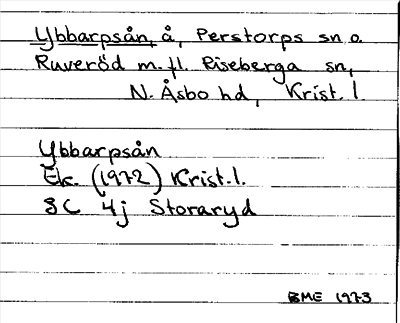 Ybbarpsån, å, Perstorps sn o.
Ruveröd m.fl. Riseberga sn,
N. Åsbo hd, Krist. l.
Ybbarpsån
Ek. (1972) Krist. l.
3C 4j Storaryd
BME 1973